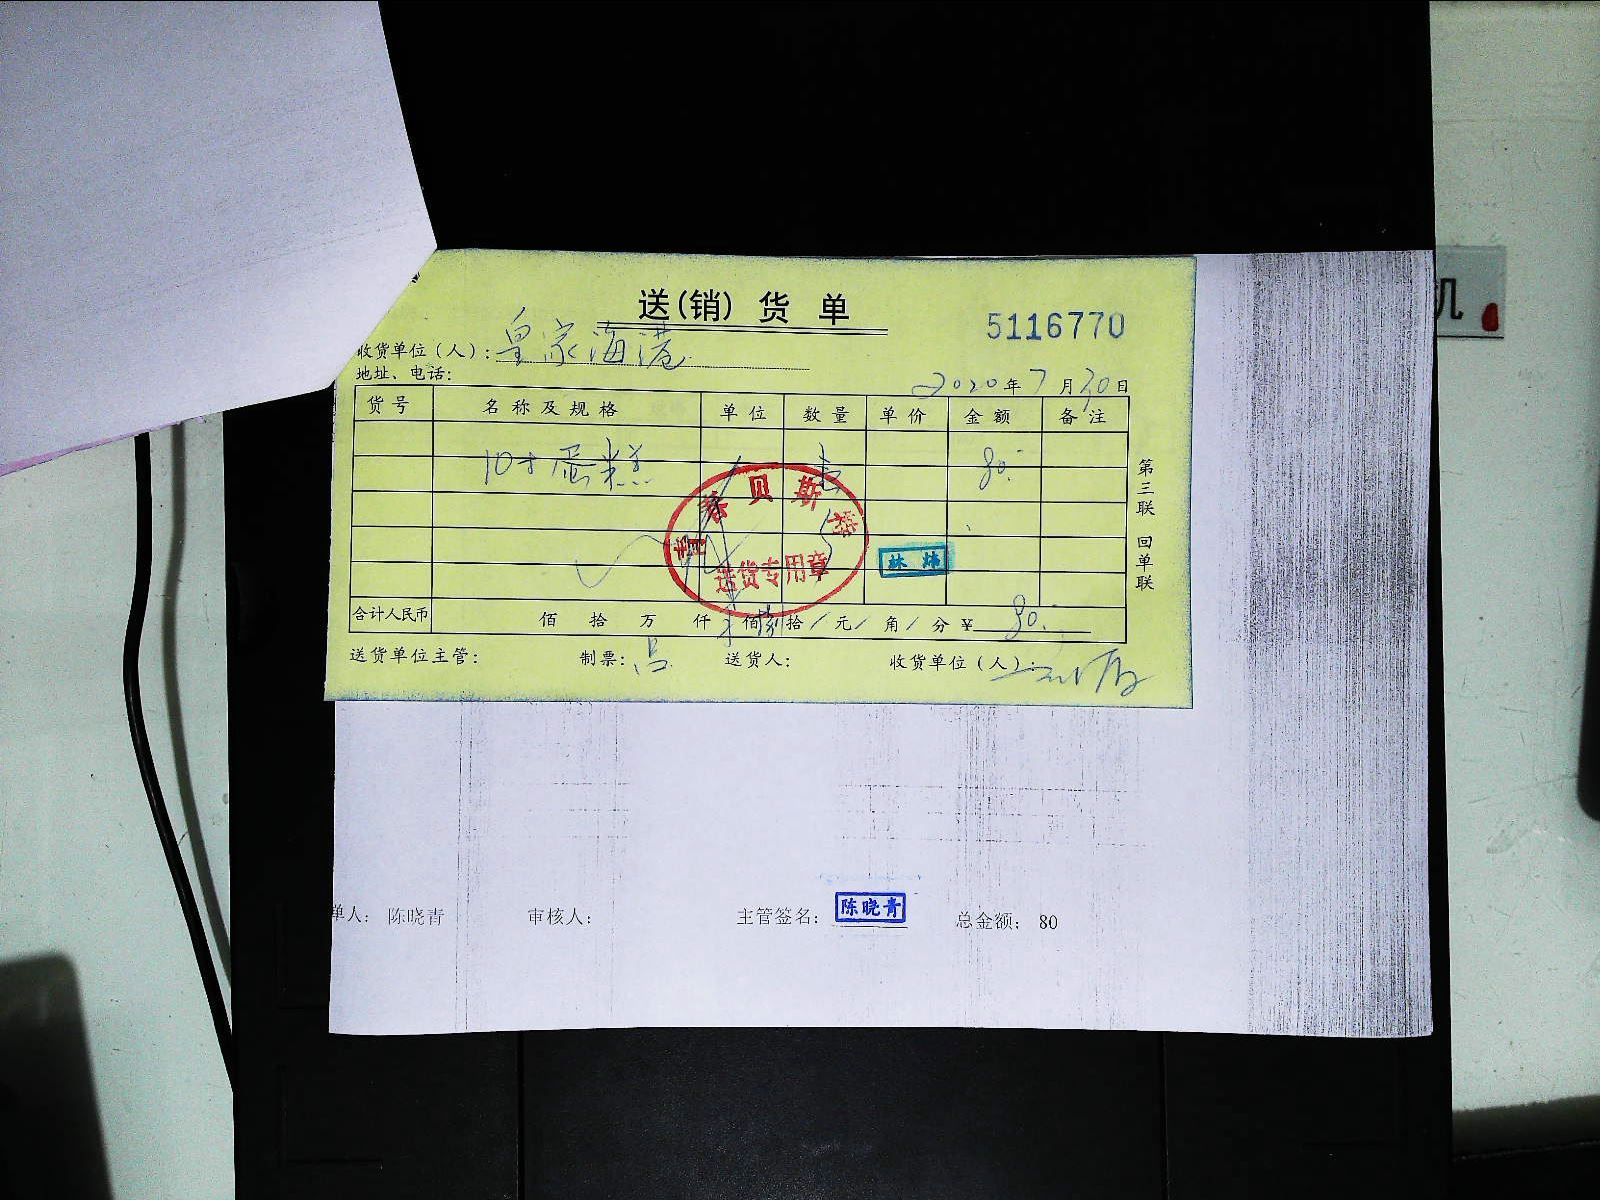 送(销)货单
5116770
收货单位(人): 皇家海港
地址、电话:
2020年7月30日
货号 名称及规格 单位 数量 单价 金额 备注
10寸蛋糕 80.
贝斯特
送货专用章
林炜
第三联 回单联
合计人民币 佰 拾 万 仟 佰 拾/元/角/分 ¥ 80.
送货单位主管: 制票: 吕 送货人: 收货单位(人):
单人: 陈晓青 审核人: 主管签名: 陈晓青 总金额: 80
机